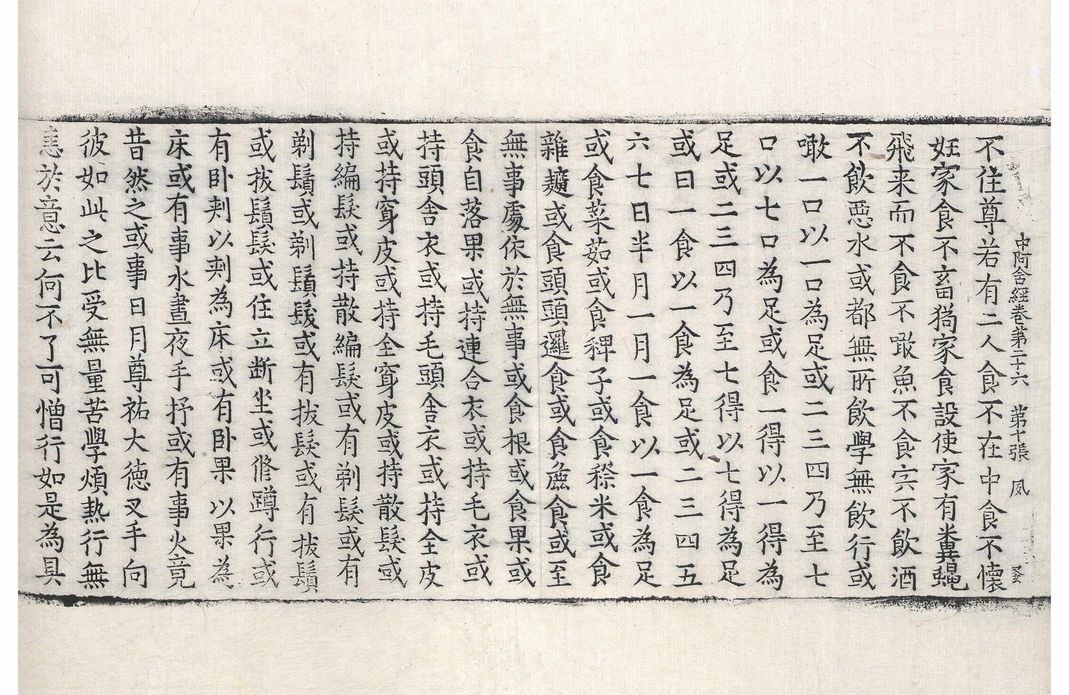 中阿含經卷第二十六 第十張 夙
不住尊若有二人食不在中食不懷
妊家食不畜狗家食設使家有糞蠅
飛来而不食不噉魚不食宍不飲酒
不飲惡水或都無所飲學無飲行或
噉一口以一口為足或二三四乃至七
口以七口為足或食一得以一得為
足或二三四乃至七得以七得為足
或日一食以一食為足或二三四五
六七日半月一月一食以一食為足
或食菜茹或食稗子或食穄米或食
雜䵃或食頭頭邏食或食麁食或至
無事處依於無事或食根或食果或
食自落果或持連合衣或持毛衣或
持頭舍衣或持毛頭舍衣或持全皮
或持穿皮或持全穿皮或持散髮或
持編髮或持散編髮或有剃髮或有
剃鬚或剃鬚髮或有拔髮或有拔鬚
或拔鬚髮或住立断坐或脩蹲行或
有卧刾以刾為床或有卧果以果為
床或有事水晝夜手抒或有事火竟
昔然之或事日月尊祐大德叉手向
彼如此之比受無量苦學煩熱行無
恚於意云何不了可憎行如是為具